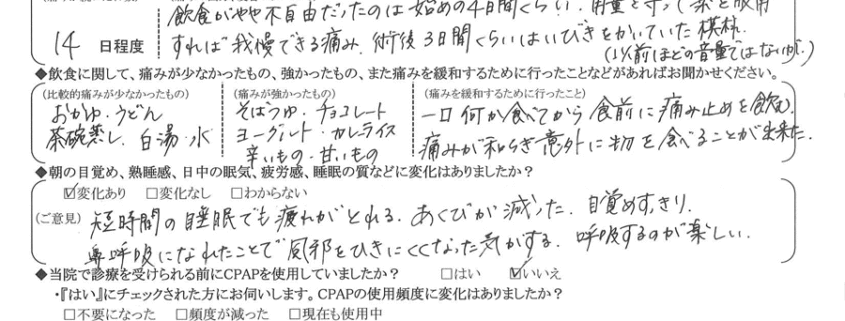 飲食がやや不自由だったのは始めの4日間くらい.用量を守って薬を服用
14 日程度
すれば我慢できる痛み.術後3日間くらいはいびきをかいていた模様.
(以前ほどの音量ではないが.)
◆飲食に関して、痛みが少なかったもの、強かったもの、また痛みを緩和するために行ったことなどがあればお聞かせください。
(比較的痛みが少なかったもの) (痛みが強かったもの) (痛みを緩和するために行ったこと)
おかゆ・うどん そばつゆ・チョコレート 一口何か食べてから食前に痛み止めを飲む.
茶碗蒸し.白湯・水 ヨーグルト・カレーライス 痛みが和らぎ意外に物を食べることが出来た.
辛いもの・甘いもの
◆朝の目覚め、熟睡感、日中の眠気、疲労感、睡眠の質などに変化はありましたか?
☑変化あり □変化なし □わからない
(ご意見) 短時間の睡眠でも疲れがとれる.あくびが減った.目覚めすっきり.
鼻呼吸になれたことで風邪をひきにくくなった気がする.呼吸するのが楽しい.
◆当院で診療を受けられる前にCPAPを使用していましたか? □はい ☑いいえ
・『はい』にチェックされた方にお伺いします。CPAPの使用頻度に変化はありましたか?
□不要になった □頻度が減った □現在も使用中